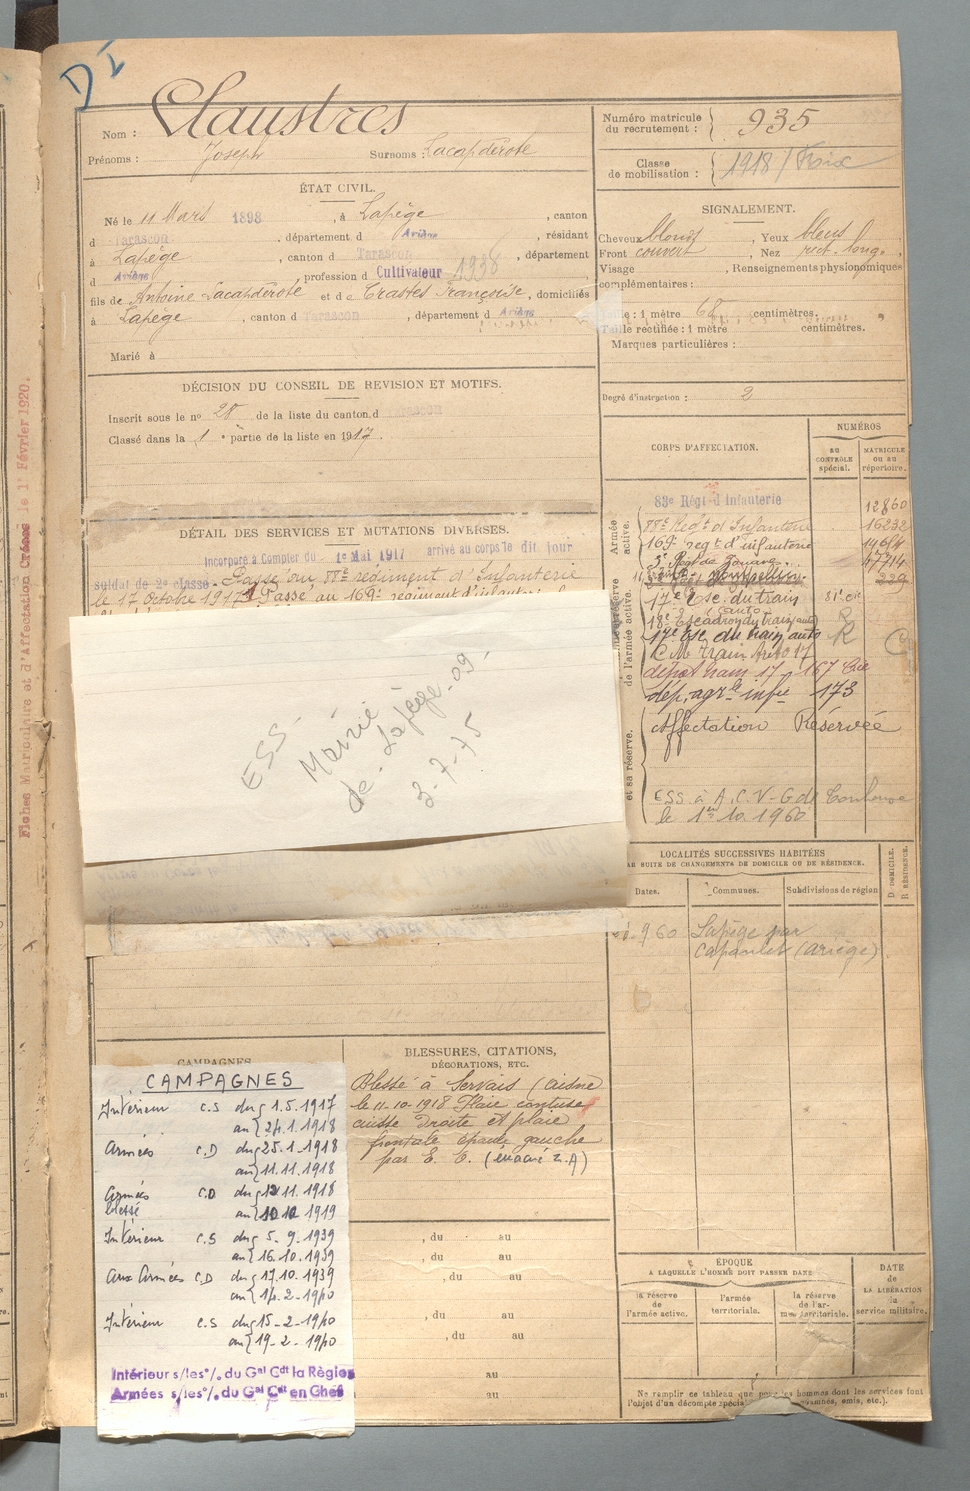 DI
Nom : Claustres
Prénoms : Joseph Surnoms : Lacapderote
Numéro matricule du recrutement : 935
Classe de mobilisation : 1918 / Foix
ÉTAT CIVIL.
Né le 11 Mars 1898, à Lapège, canton
d Tarascon, département d Ariège, résidant
à Lapège, canton d Tarascon, département
d Ariège, profession d Cultivateur 1938
fils de Antoine Lacapderote et de Crastes Françoise, domiciliés
à Lapège, canton d Tarascon, département d Ariège
Marié à
SIGNALEMENT.
Cheveux blonds, Yeux bleus
Front couvert, Nez rect. long.
Visage , Renseignements physionomiques
complémentaires :
Taille : 1 mètre 68 centimètres.
Taille rectifiée : 1 mètre centimètres.
Marques particulières :
Degré d'instruction : 2
DÉCISION DU CONSEIL DE REVISION ET MOTIFS.
Inscrit sous le nº 28 de la liste du canton d Tarascon
Classé dans la 1e partie de la liste en 1917.
DÉTAIL DES SERVICES ET MUTATIONS DIVERSES.
Incorporé à Compter du 1er Mai 1917 arrivé au corps le dit jour
soldat de 2e classe. Passé au régiment d'Infanterie
le 17 Octobre 1917. Passé au 169e régiment d'infanterie
CORPS D'AFFECTATION.
NUMÉROS
AU CONTRÔLE spécial.
MATRICULE OU AU répertoire.
Armée active.
de l'armée active.
et sa réserve.
83e Régt d'Infanterie 12860
Régt d'Infanterie 16232
169e regt d'infanterie
3e Régt de Zouaves
17e Esc. du train
18e Escadron du train (auto)
17e Esc. du train auto
C M Train Auto 17
dépôt train 17 167 Cie
dép. agrle infie 173
Affectation Réservée
ESS. à A.C.V-G de Toulouse
le 1er 10. 1960
ESS
Mairie
de Lapège-09-
3-7-75
LOCALITÉS SUCCESSIVES HABITÉES
PAR SUITE DE CHANGEMENTS DE DOMICILE OU DE RÉSIDENCE.
Dates. Communes. Subdivisions de région
D. DOMICILE. R. RÉSIDENCE.
9.60 Lapège par
Capoulet (Ariège)
CAMPAGNES
CAMPAGNES
Intérieur C.S du 1.5.1917
au 24.1.1918
Armées C.D du 25.1.1918
au 11.11.1918
Armées C.D du 12.11.1918
blessé au 10.10 1919
Intérieur C.S du 5.9.1939
au 16.10.1939
Aux Armées C.D du 17.10.1939
au 14.2-1940
Intérieur C.S du 15-2-1940
au 19-2-1940
Intérieur s/les o/. du Gal Cdt la Région
Armées s/les o/. du Gal Cdt en Chef
BLESSURES, CITATIONS,
DÉCORATIONS, ETC.
Blessé à Servais (Aisne
le 11-10-1918 Plaie contuse
cuisse Droite et plaie
frontale épaule gauche
par E. O. (évacué z.A)
, du au
, du au
, du au
, du au
, du au
au
au
ÉPOQUE
A LAQUELLE L'HOMME DOIT PASSER DANS
la réserve de l'armée active.
l'armée territoriale.
la réserve de l'armée territoriale.
DATE de LA LIBÉRATION du service militaire.
Ne remplir ce tableau que pour les hommes dont les services font
l'objet d'un décompte spécial
Fiches Matriculaire et d'Affectation Créées le 1er Février 1920.